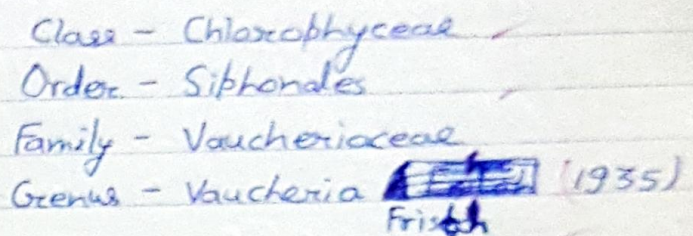 Class - Chlorophyceae
Order - Siphonales
Family - Vaucheriaceae
Genus - Vaucheria (1935)
Fristch